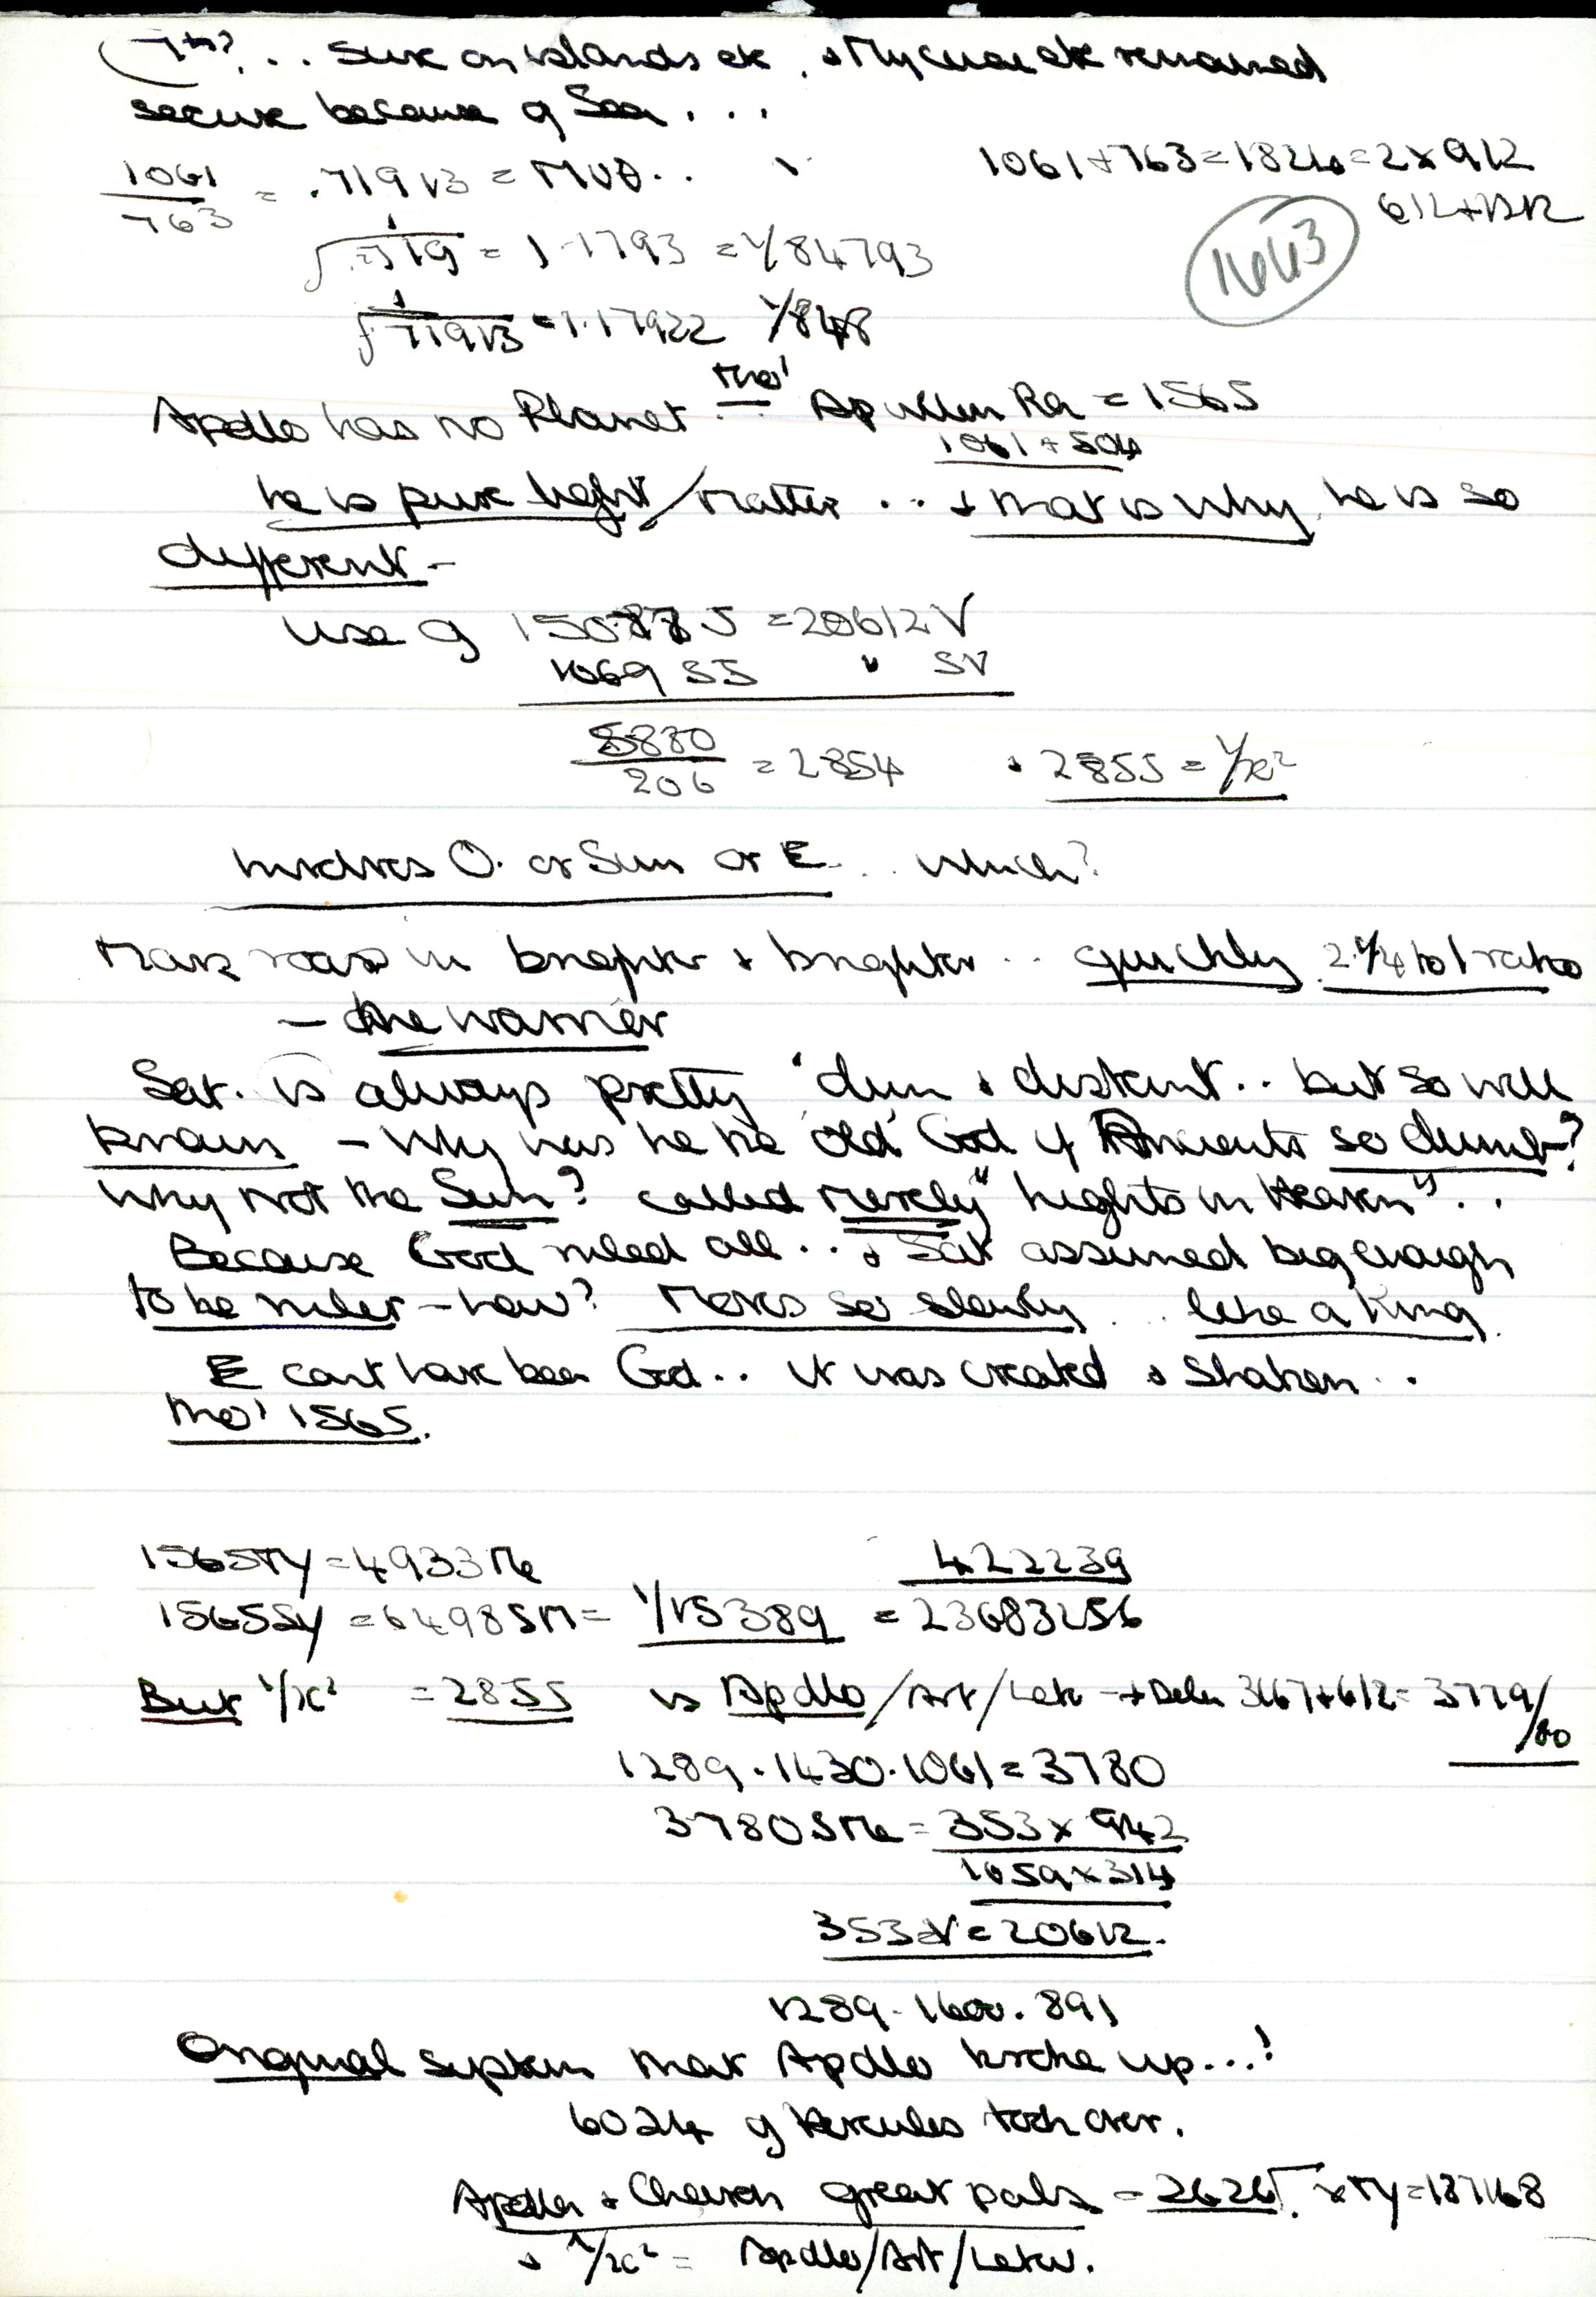 7th? .. Sure on islands etc. + Mycenae etc remained
secure because of Sea ...
1061/763 = .71913 = MUO..
1061+763=1824=2x912
612+1212
1643
√1/.719 = 1.1793 = 1/84793
√1/71913 = 1.17922 1/848
Apollo has no Planet .. tho' Ap when Ra = 1565
1061+504
he is pure light/matter .. + that is why he is so
different -
use of 15087 J = 20612 V
1069 SJ " SV
5880/206 = 2854 + 2855 = 1/x²
O. or Sun or E .. which?
Mars in brighter + brighter .. quickly 2¼ to 1 ratio
- the warrior
Sat. is always pretty 'dim + distant .. but so well
known - Why was he the 'old' God if Ancients so dumb?
Why not the Sun? called merely "lights in Heaven"..
Because God ruled all .. + Sat assumed big enough
to be ruler - how? Moves so slowly .. like a King.
E cant have been God .. it was created + shaken ..
tho' 1565.
1565TY = 4933Me
422239
1565SY = 6498SM = 1/15389 = 23683256
But 1/x² = 2855 is Apollo/Art/Leto + Delos 3167+612 = 3779/80
1289.1430.1061=3780
3780SMe = 353x942
1059x314
353SV = 20612.
1289.1600.891
Original system that Apollo broke up...!
6024 of Hercules took over.
Apollo + Cheiron great pals = 2626√. x TY = 137168
+ 1/x² = Apollo/Art/Leto.